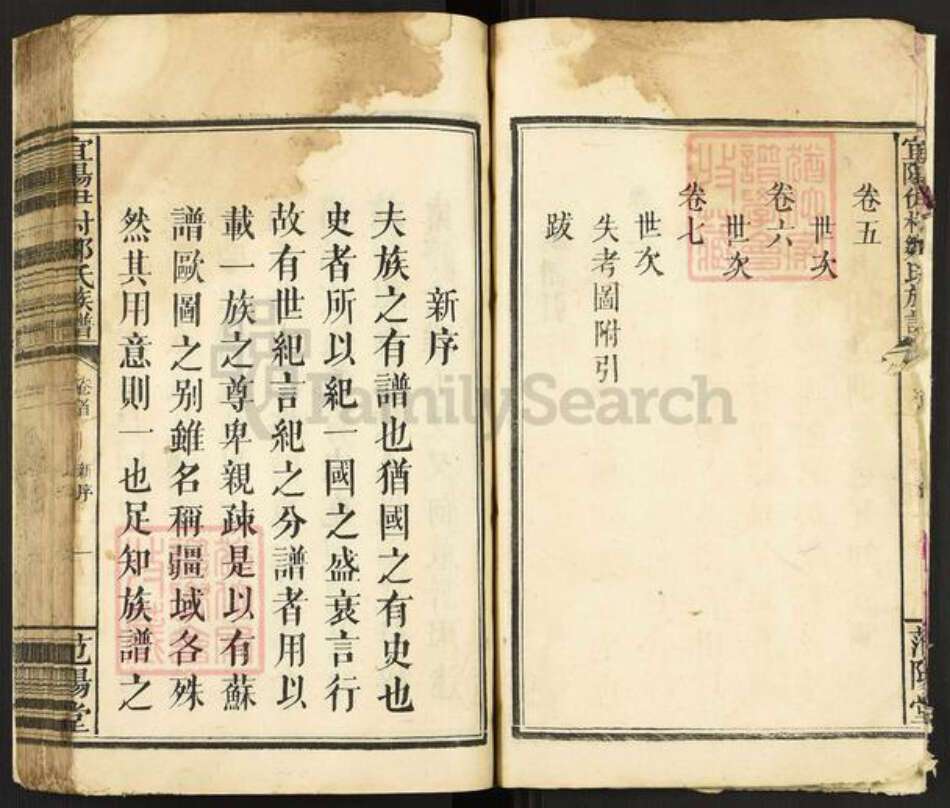 卷五
世次
卷六
世次
卷七
世次
失考圖附引
跋
新序
夫族之有譜也猶國之有史也
史者所以紀一國之盛衰言行
故有世紀言紀之分譜者用以
載一族之尊卑親疎是以有蘇
譜歐圖之別雖名稱疆域各殊
然其用意則一也足知族譜之
氏族譜
卷首
新序
一
范陽堂
FamilySearch